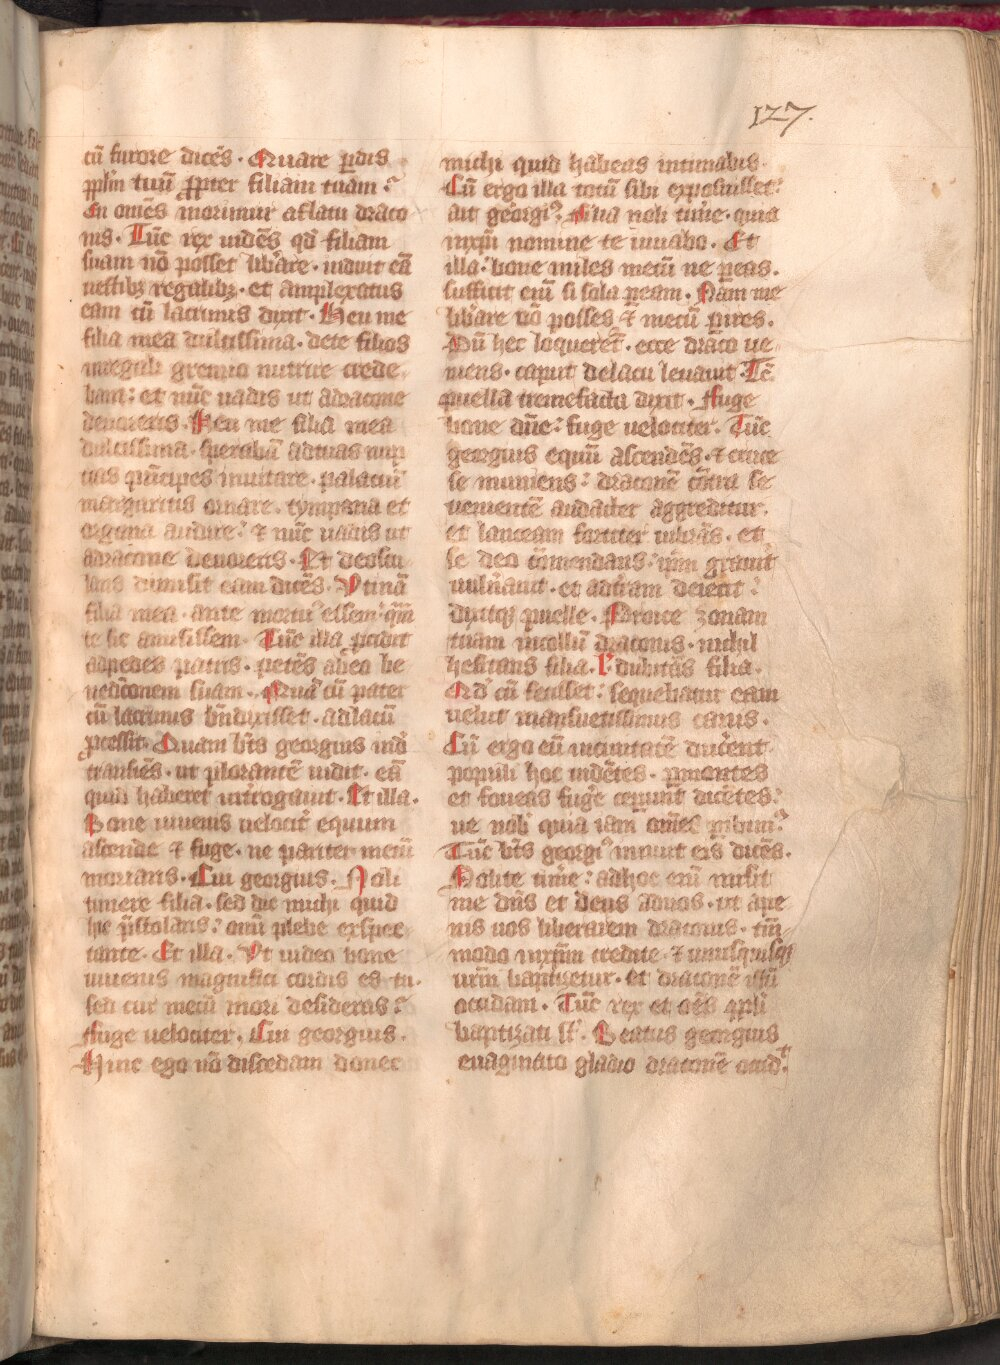 127.
cū furore dicēs. Quare ꝑdis
pplm̄ tuū ꝓpter filiam tuam?
En om̄es morimur aflatu draco
nis. Tūc rex uidēs qd̓ filiam
suam nō posset lib̓are. induit eā
uestibꝫ regalibꝫ. et amplexatus
eam cū lacrimis dixit. Heu me
filia mea dulcissima. dete filios
inregali gremio nutrire crede-
bam: et nūc uadis ut adracone
deuoreris. Heu me filia mea
dulcissima. sperabā adtuas nup
tias pͥncipes inuitare. palaciū
margaritis ornare. tympana et
organa audire: ⁊ nūc uadis ut
adracone deuoreris. Et deoscu
lans dimisit eam dicēs. Vtinā
filia mea. ante mortuꝰ essem. qͣm
te sic amisissem. Tūc illa ꝓcidit
adpedes patris. petēs abeo be
nedictōnem suam. Quā cū pater
cū lacrimis bn̄dixisset. adlacū
ꝓcessit. Quam bt̄s georgius ind̓
transiēs. ut plorantē uidit. eā
quid haberet int̓rogauit. Et illa.
Bone iuuenis uelocit̓ equum
ascende ⁊ fuge. ne pariter mecū
moriaris. Cui georgius. Noli
timere filia. sed dic michi quid
hic p̄stolaris: omi plebe exspec
tante. Et illa. Vt uideo bone
iuuenis magnifici cordis es tu.
sed cur mecū mori desideras?
Fuge uelociter. Cui georgius.
Hinc ego nō discedam donec
michi quid habeas intimabis.
Cū ergo illa totū sibi exposuisset:
ait georgiꝰ. Filia noli tim̓e. quia
inxp̄i nomine te iuuabo. Et
illa: bone miles mecū ne ꝑeas.
sufficit em̄ si sola ꝑeam. Nam me
lib̓are nō posses ⁊ mecū ꝑires.
Dū hec loqueret̓. ecce draco ue-
niens. caput delacu leuauit. Tc̄
puella tremefacta dixit. Fuge
bone dn̄e: fuge uelociter. Tūc
georgius equū ascendēs. ⁊ cruce
se muniens: draconē cōtra se
uenientē audacter aggreditur.
et lanceam fortiter uibrās. et
se deo cōmendans: ip̄m grauit̓
uuln̓auit. et adt̓ram deiecit:
dixitqꝫ puelle. Proice zonam
tuam incollū draconis. nichil
hesitans filia. ł dubitās filia.
Qd̓ cū fecisset: sequebatur eam
uelut mansuetissimus canis.
Cū ergo eū inciuitatē duc̓ent
populi hoc uidētes. ꝑmontes
et foueas fug̓e ceꝑunt dicētes:
ue nob̓ quia iam om̄es ꝑibimꝰ.
Tūc bt̄s georgiꝰ innuit eis dicēs.
Nolite tim̓e: adhoc em̄ misit
me dn̄s et deus aduos. ut ape
nis uos liberarem draconis. tm̄
modo inxp̄m credite. ⁊ unusquisqꝫ
ur̄m baptizetur. et draconē istū
occidam. Tūc rex et oēs ppl̄i
baptizati st̄. Beatus georgius
euaginato gladio draconē occid̓.